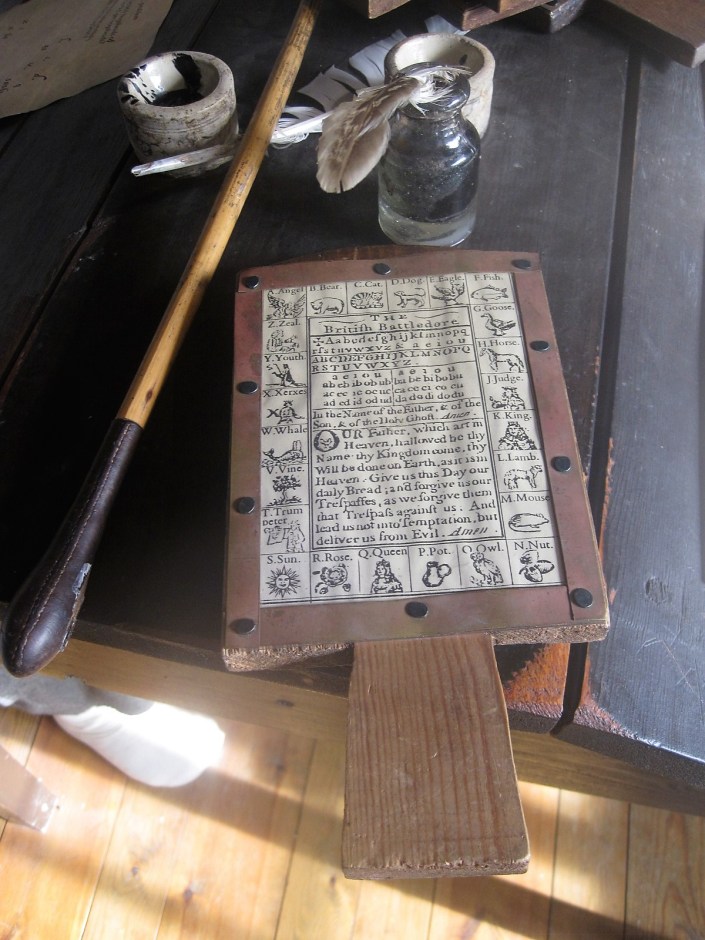 A. Angel B. Bear. C. Cat. D. Dog. E. Eagle. F. Fish.
G. Goose.
H. Horse.
J. Judge.
K. King.
L. Lamb.
M. Mouse
N. Nut.
O. Owl.
P. Pot.
Q. Queen
R. Rose.
S. Sun.
T. Trum
peter
V. Vine.
W. Whale
X. Xerxes
Y. Youth.
Z. Zeal.
THE
British Battledore
✠Aabcdefghijklmnopq
rſstuvwxyz & aeiou
ABCDEFGHIJKLMNOPQ
RSTUVWXYZ.
a e i o u a e i o u
ab eb ib ob ub ba be bi bo bu
ac ec ic oc uc ca ce ci co cu
ad ed id od ud da di do du
In the Name of the Father, & of the
Son, & of the Holy Ghoſt. Amen.
OUR Father, which art in
Heaven, hallowed be thy
Name: thy Kingdom come, thy
Will be done on Earth, as it is in
Heaven. Give us this Day our
daily Bread; and forgive us our
Treſpaſſes, as we forgive them
that Treſpaſs againſt us. And
lead us not into Temptation, but
deliver us from Evil. Amen.